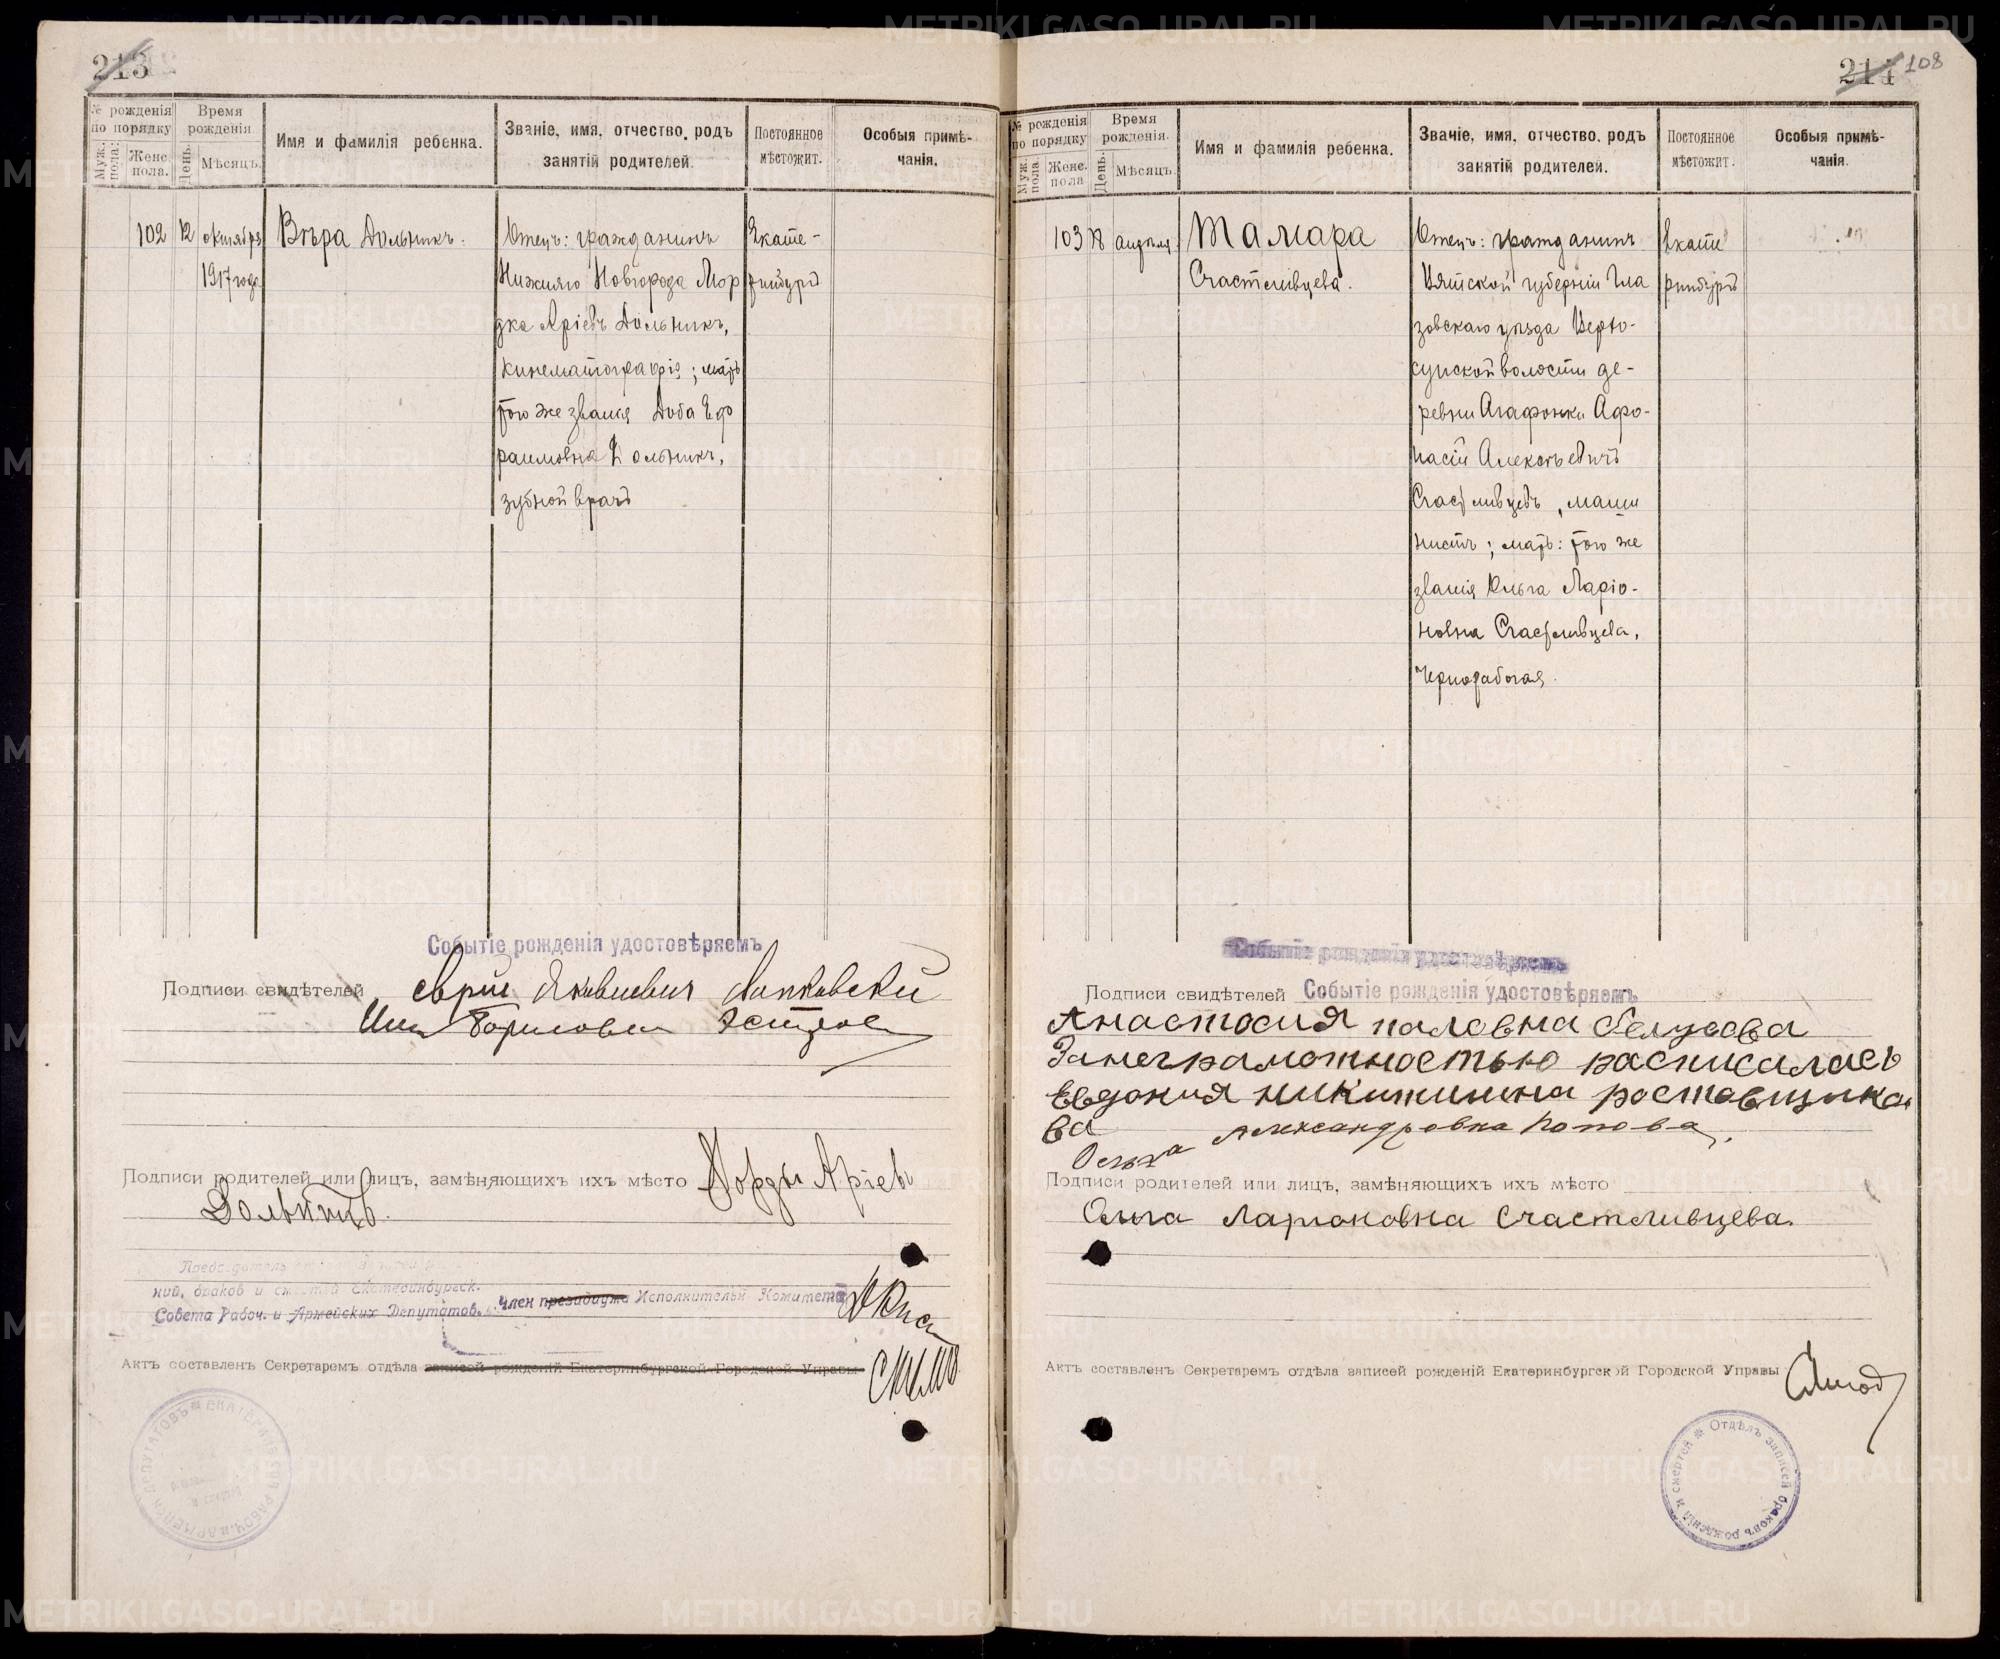 213
№ рожденія по порядку
Муж. пола:
Женс. пола.
Время рожденія
День.
Мѣсяцъ.
Имя и фамилія ребенка.
Званіе, имя, отчество, родъ
занятій родителей.
Постоянное
мѣстожит.
Особыя примѣ-
чанія.
102 12 октября
1917 года
Вѣра Дольникъ.
Отецъ: гражданинъ
Нижняго Новгорода Мор
дка Аріевъ Дольникъ,
кинематографія; мать
того же званія Доба Еф
раимовна Дольникъ,
зубной врачъ
Екате-
ринбургъ
Событіе рожденія удостовѣряемъ
Подписи свидѣтелей
Подписи родителей или лицъ, замѣняющихъ ихъ мѣсто Мордка Аріевъ
Дольникъ.
ній, браков и смертей Екатеринбургск.
Совета Рабоч. и Армейских Депутатов. Член президиума Исполнительн Комитета
Актъ составленъ Секретаремъ отдѣла записей рожденій Екатеринбургской Городской Управы
214 108
№ рожденія по порядку
Муж. пола
Женс. пола
Время рожденія.
День.
Мѣсяцъ.
Имя и фамилія ребенка.
Званіе, имя, отчество, родъ
занятій родителей.
Постоянное
мѣстожит.
Особыя примѣ-
чанія.
103 18 апрѣля
Тамара
Счастливцева.
Отецъ: гражданинъ
Вятской губерніи Гла
зовскаго уѣзда
волости де-
ревни Агафонки Афо-
насій Алексѣевичъ
Счастливцевъ, маши
нистъ; мать: того же
званія Ольга Ларіо-
новна Счастливцева,
чернорабочая.
Екате
ринбургъ
Событіе рожденія удостовѣряемъ
Подписи свидѣтелей Событіе рожденія удостовѣряемъ
Анастосия паловна белусова
Занеграмотностью расписалась
Евдокия никитишна ростовщико
ва
Ольга Александровна Попова,
Подписи родителей или лицъ, замѣняющихъ ихъ мѣсто
Ольга Ларионовна Счастливцева.
Актъ составленъ Секретаремъ отдѣла записей рожденій Екатеринбургской Городской Управы
Отдѣлъ записей браковъ рожденій и смертей
METRIKI.GASO-URAL.RU